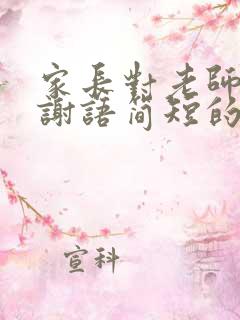 家长對老師
謝語简短的
宣科